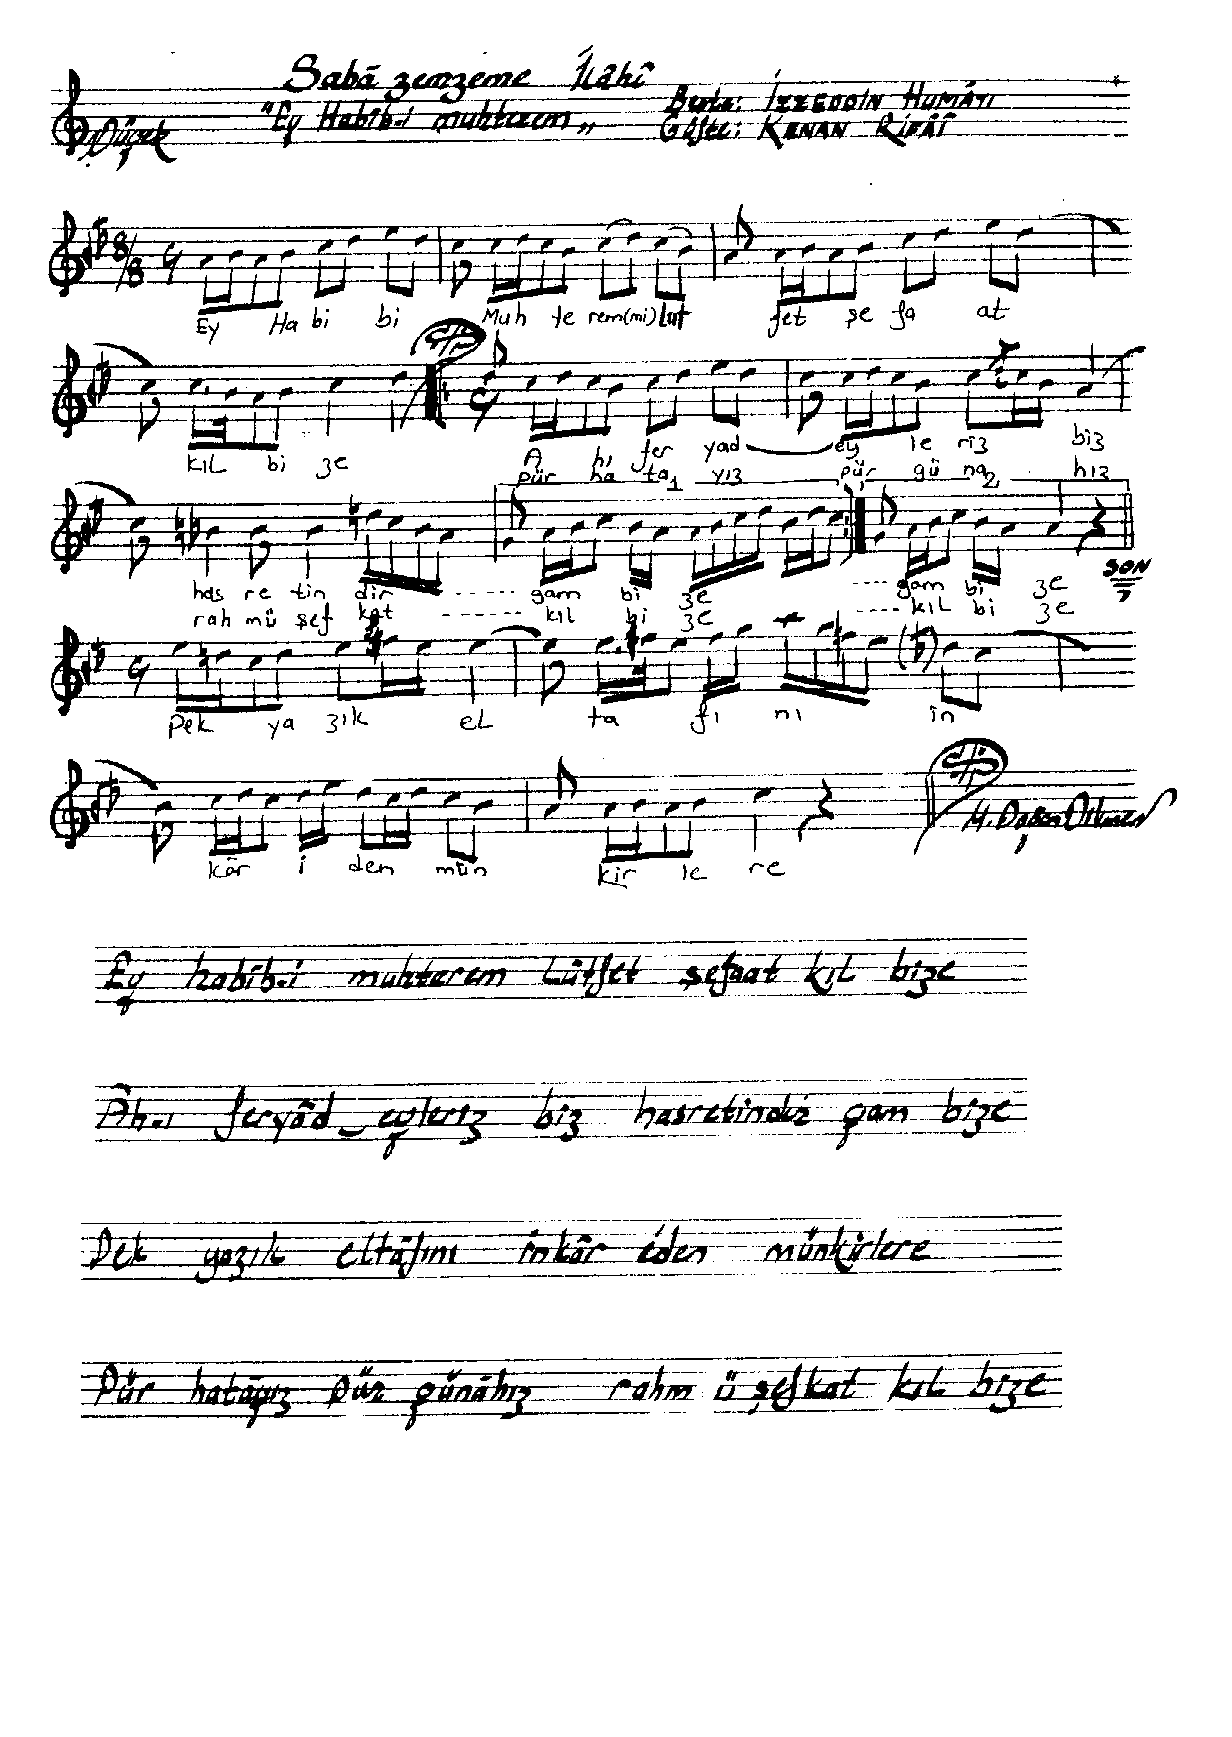 Sabâ zemzeme İlâhî
"Ey Habîb-i muhterem"
Beste: İzzeddin Humâyı
Düyek
Güfte: Kenan Rifâî
8/8
Ey Ha bi bi Muh te rem(mi) lut fet şe fa at
kıl bi ze A hı fer yad ey le riz biz
pür ha ta yız pür gü na hız
1 2
has re tin dir ------ gam bi ze ---- gam bi ze SON
rah mü şef kat ------ kıl bi ze ---- kıl bi ze
Pek ya zık el ta fı nı in
kâr i den mün kir le re
Ey habîb-i muhterem Lûtfet şefaat kıl bize
Âh-ı feryâd eyleriz biz hasretindir gam bize
Pek yazık eltâfını inkâr éden münkirlere
Pür hatâyız Pür günâhız rahm ü şefkat kıl bize